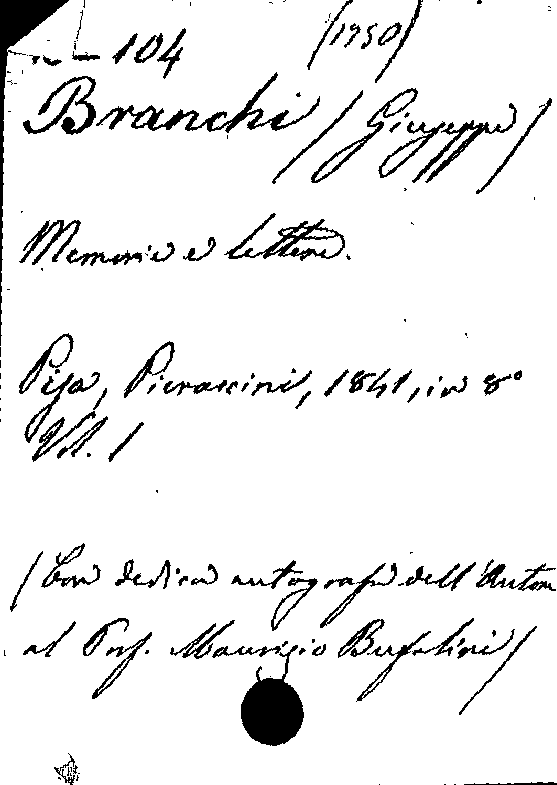 n - 104 (1950)
Branchi (Giuseppe)
Memorie e lettere.
Pisa, Pieraccini, 1841, in 8°
Vol. 1
(Con dedica autografa dell'Autore
al Prof. Maurizio Bufalini)